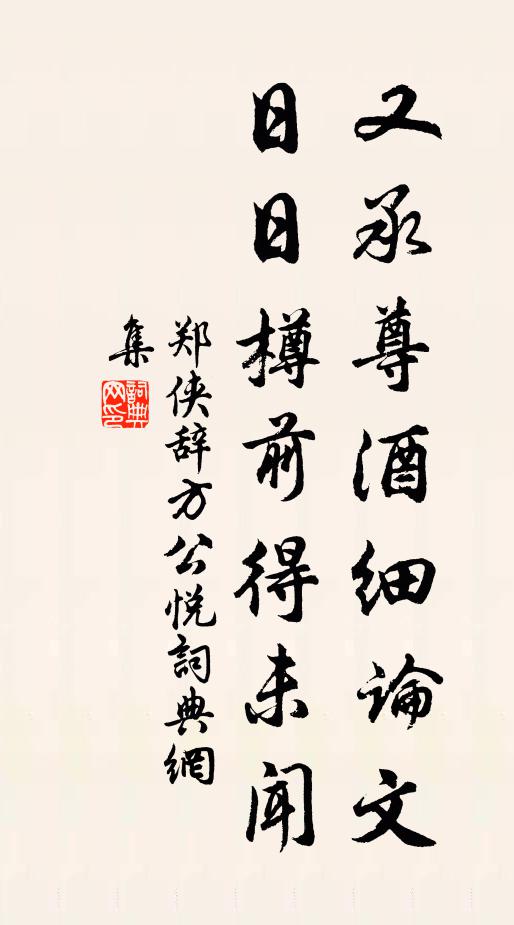 又承尊酒细论文
日日樽前得未闻
郑侠辞方公悦詞典網
集
詞典
网印